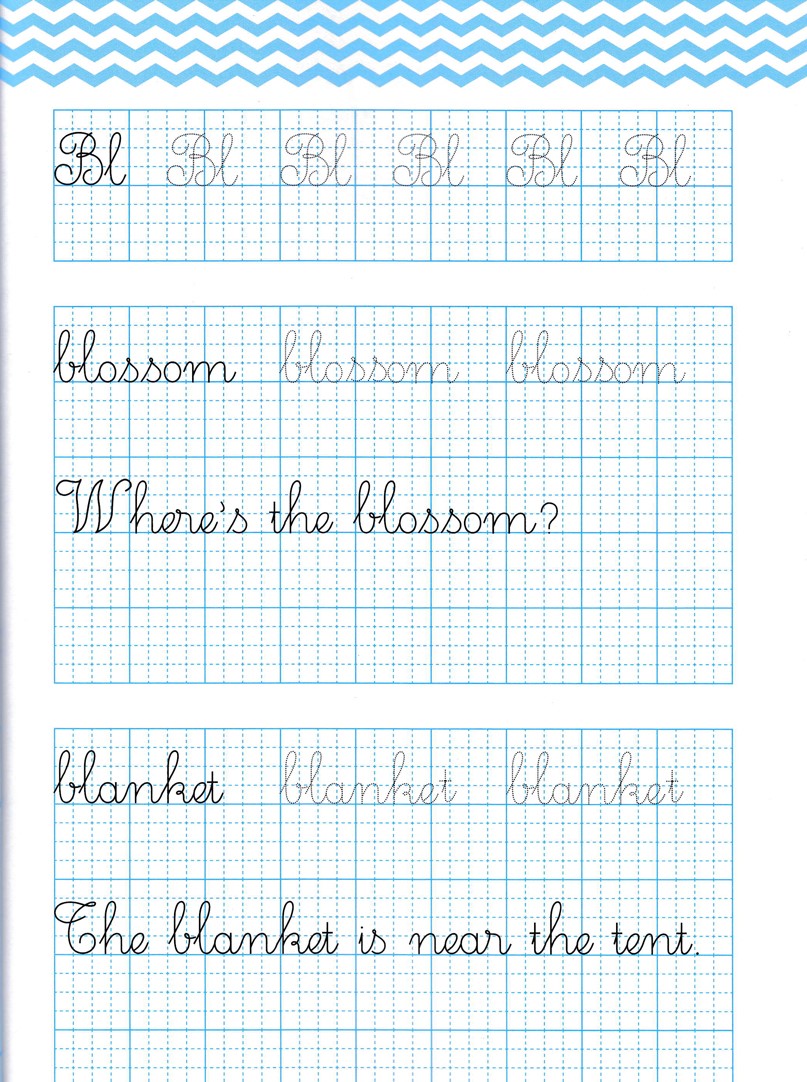 Bl Bl Bl Bl Bl Bl
blossom blossom blossom
Where's the blossom?
blanket blanket blanket
The blanket is near the tent.